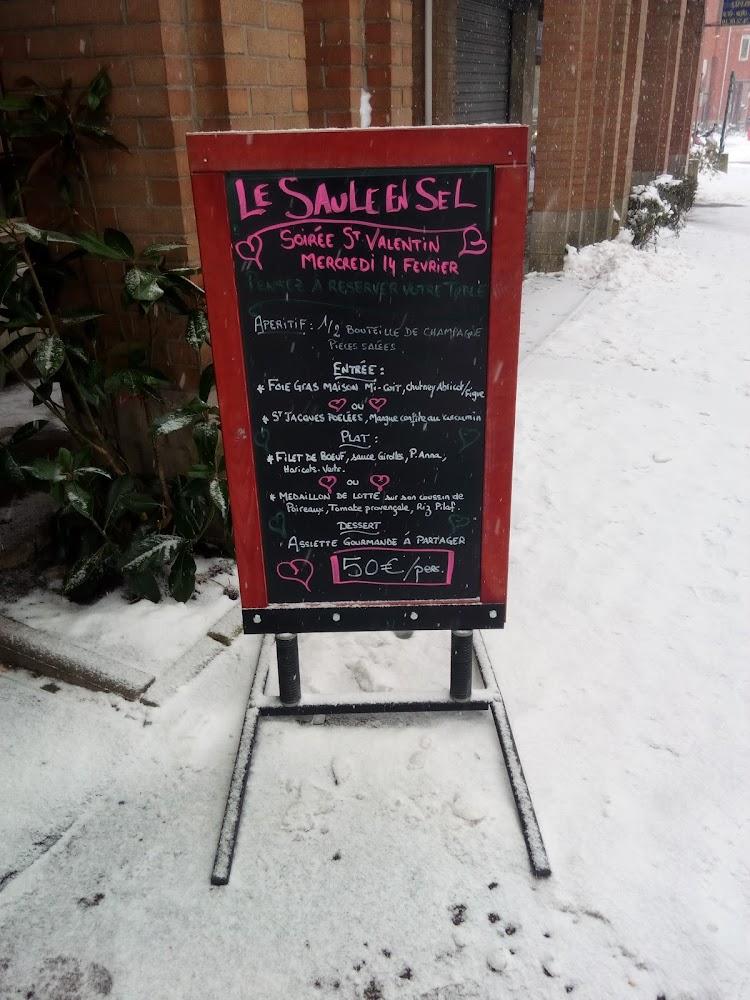 LE SAULE EN SEL
SOIRÉE ST VALENTIN
MERCREDI 14 FEVRIER
PENSEZ À RESERVER VOTRE TABLE
APERITIF : 1/2 BOUTEILLE DE CHAMPAGNE
PIECES SALÉES
ENTRÉE :
* FOIE GRAS MAISON MI-CUIT, chutney Abricot/Figue
OU
* ST JACQUES POELÉES, Mangue confite au curcumin
PLAT :
* FILET DE BOEUF, sauce Girolles, P. Anna,
Haricots-Verts.
OU
* MEDAILLON DE LOTTE sur son coussin de
Poireaux, Tomate provençale, Riz Pilaf.
DESSERT
ASSIETTE GOURMANDE À PARTAGER
50€/pers.